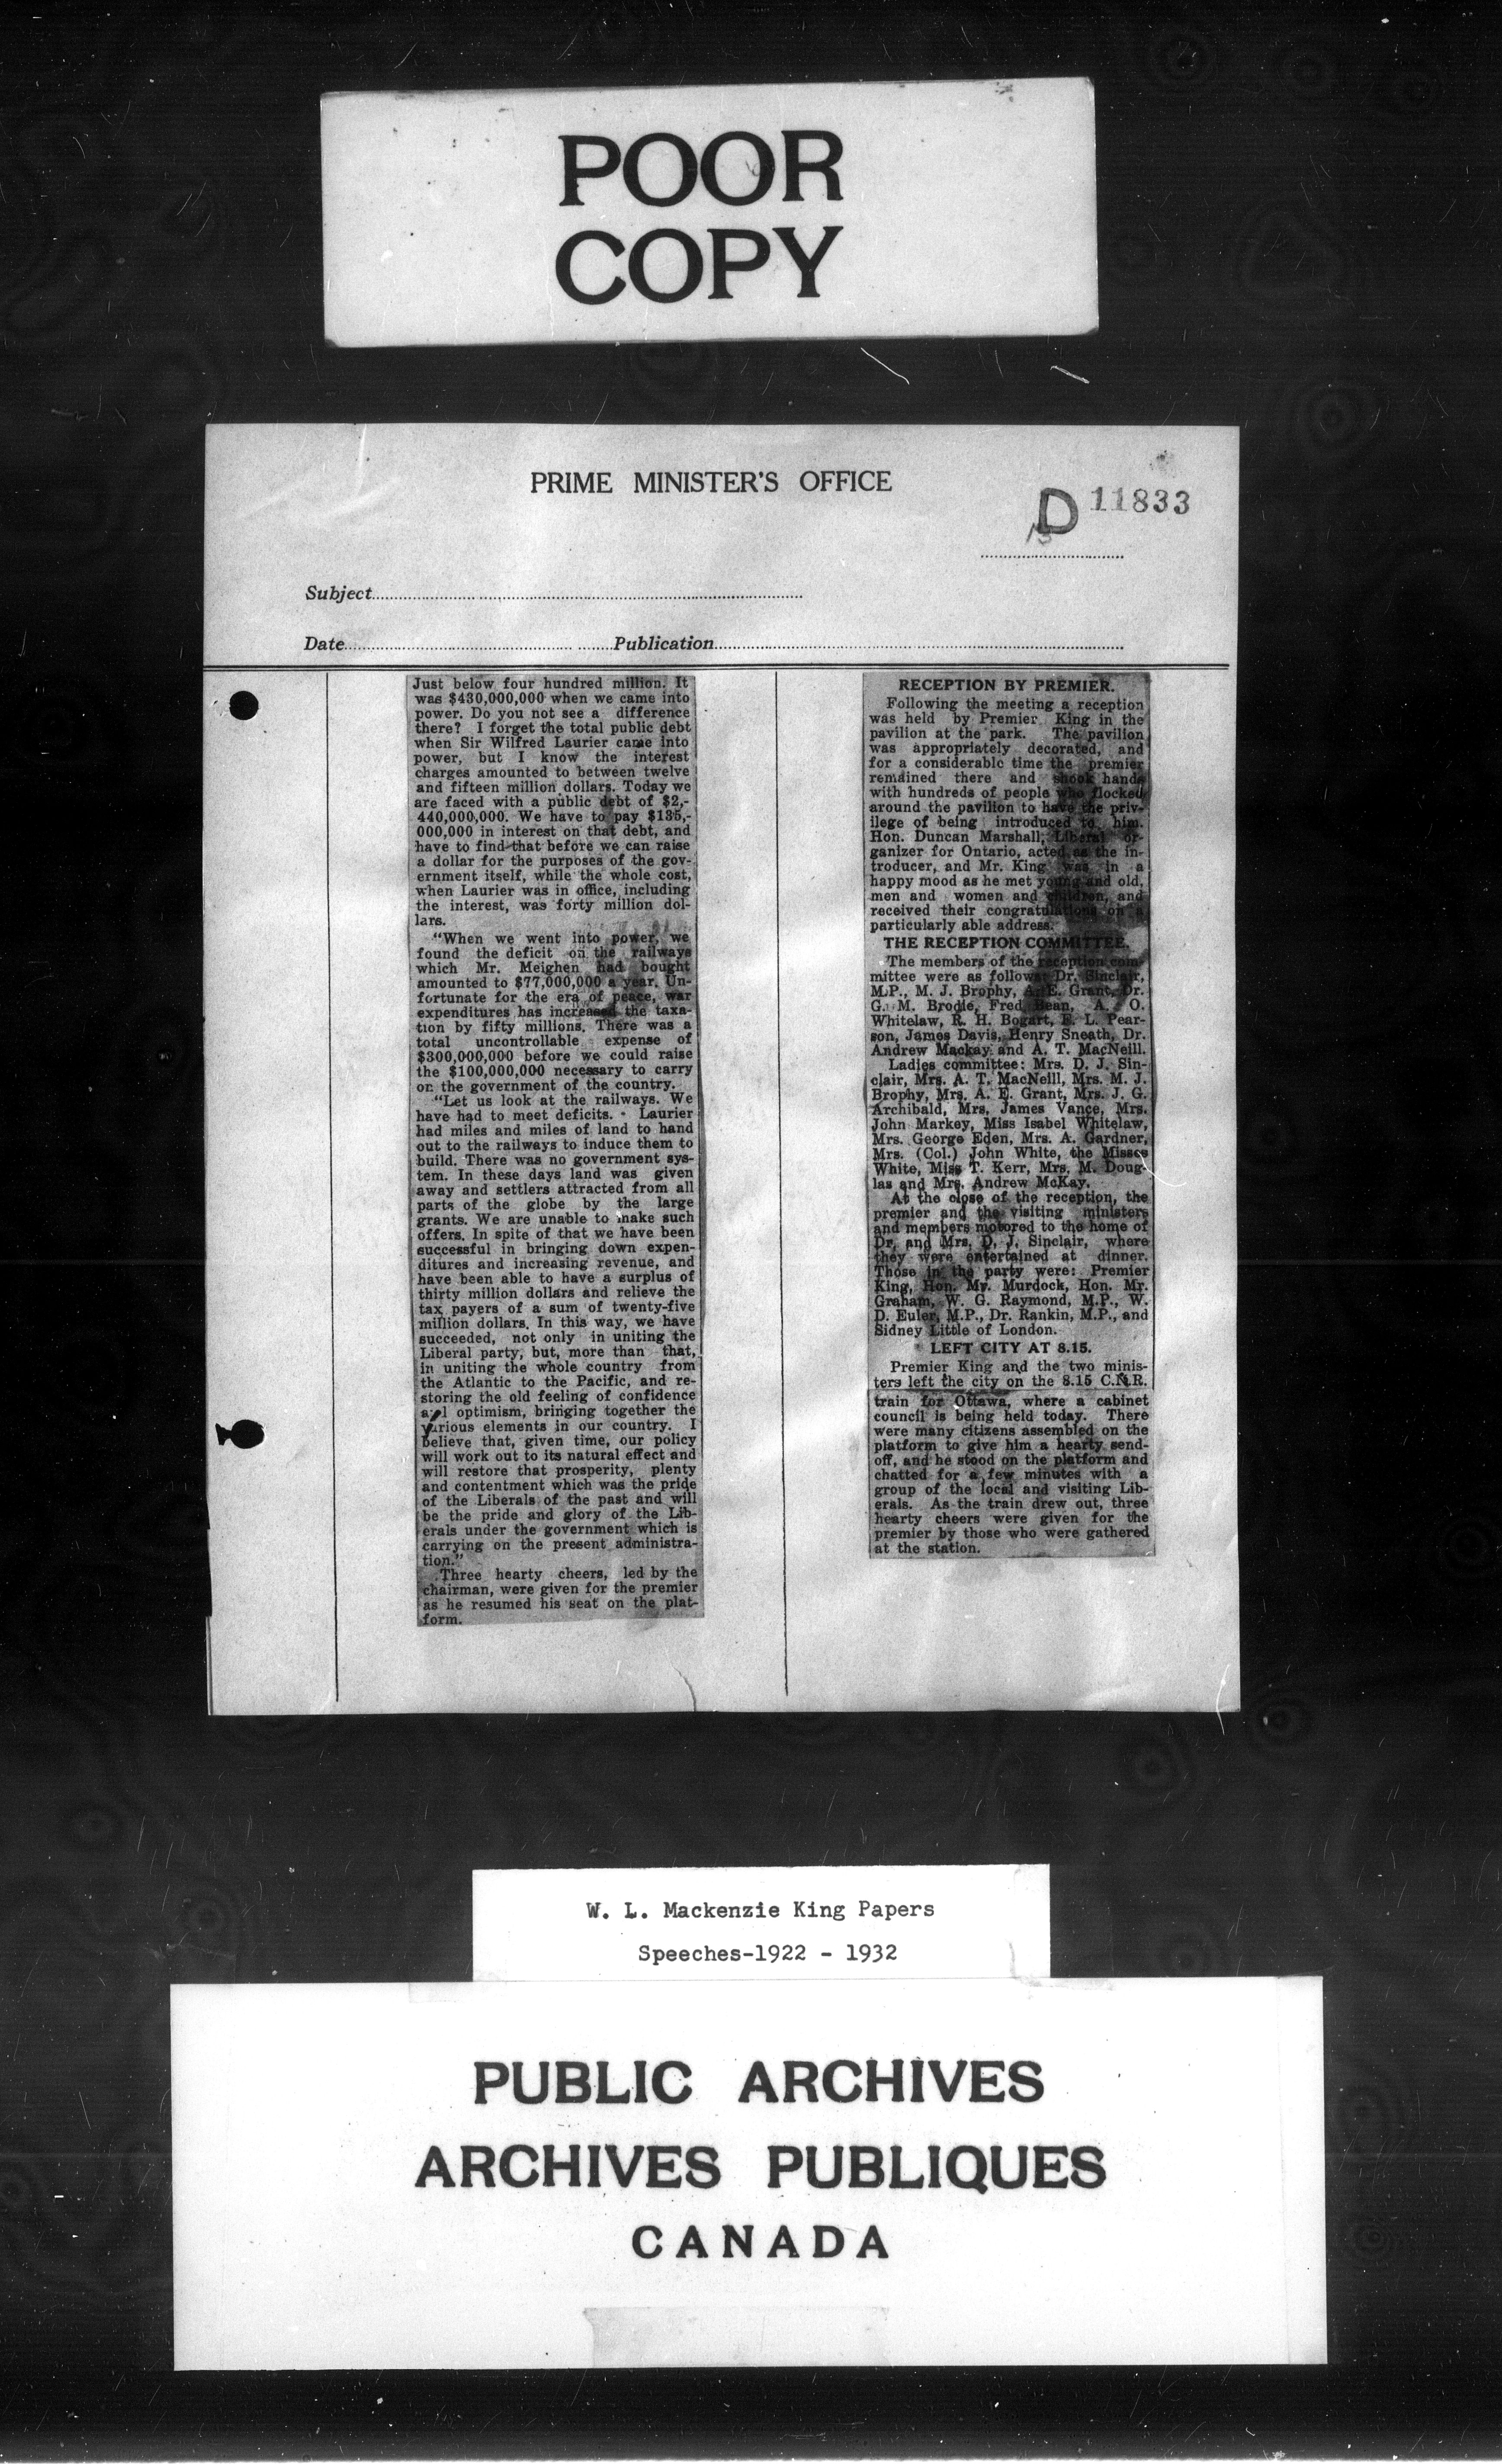 POOR
COPY
PRIME MINISTER'S OFFICE
D 11833
Subject
Date Publication
Just below four hundred million. It
was $430,000,000 when we came into
power. Do you not see a difference
there? I forget the total public debt
when Sir Wilfred Laurier came into
power, but I know the interest
charges amounted to between twelve
and fifteen million dollars. Today we
are faced with a public debt of $2,-
440,000,000. We have to pay $135,-
000,000 in interest on that debt, and
have to find that before we can raise
a dollar for the purposes of the gov-
ernment itself, while the whole cost,
when Laurier was in office, including
the interest, was forty million dol-
lars.
"When we went into power, we
found the deficit on the railways
which Mr. Meighen had bought
amounted to $77,000,000 a year. Un-
fortunate for the era of peace, war
expenditures has increased the taxa-
tion by fifty millions. There was a
total uncontrollable expense of
$300,000,000 before we could raise
the $100,000,000 necessary to carry
on the government of the country.
"Let us look at the railways. We
have had to meet deficits. Laurier
had miles and miles of land to hand
out to the railways to induce them to
build. There was no government sys-
tem. In these days land was given
away and settlers attracted from all
parts of the globe by the large
grants. We are unable to make such
offers. In spite of that we have been
successful in bringing down expen-
ditures and increasing revenue, and
have been able to have a surplus of
thirty million dollars and relieve the
tax payers of a sum of twenty-five
million dollars. In this way, we have
succeeded, not only in uniting the
Liberal party, but, more than that,
in uniting the whole country from
the Atlantic to the Pacific, and re-
storing the old feeling of confidence
and optimism, bringing together the
various elements in our country. I
believe that, given time, our policy
will work out to its natural effect and
will restore that prosperity, plenty
and contentment which was the pride
of the Liberals of the past and will
be the pride and glory of the Lib-
erals under the government which is
carrying on the present administra-
tion."
Three hearty cheers, led by the
chairman, were given for the premier
as he resumed his seat on the plat-
form.
RECEPTION BY PREMIER.
Following the meeting a reception
was held by Premier King in the
pavilion at the park. The pavilion
was appropriately decorated, and
for a considerable time the premier
remained there and shook hands
with hundreds of people who flocked
around the pavilion to have the priv-
ilege of being introduced to him.
Hon. Duncan Marshall, Liberal or-
ganizer for Ontario, acted as the in-
troducer, and Mr. King was in a
happy mood as he met young and old,
men and women and children, and
received their congratulations on a
particularly able address.
THE RECEPTION COMMITTEE.
The members of the reception com-
mittee were as follows: Dr. Sinclair,
M.P., M. J. Brophy, A. E. Grant, Dr.
G. M. Brodie, Fred Bean, A. O.
Whitelaw, R. H. Bogart, E. L. Pear-
son, James Davis, Henry Sneath, Dr.
Andrew Mackay and A. T. MacNeill.
Ladies committee: Mrs. D. J. Sin-
clair, Mrs. A. T. MacNeill, Mrs. M. J.
Brophy, Mrs. A. E. Grant, Mrs. J. G.
Archibald, Mrs. James Vance, Mrs.
John Markey, Miss Isabel Whitelaw,
Mrs. George Eden, Mrs. A. Gardner,
Mrs. (Col.) John White, the Misses
White, Miss T. Kerr, Mrs. M. Doug-
las and Mrs. Andrew McKay.
At the close of the reception, the
premier and the visiting ministers
and members motored to the home of
Dr. and Mrs. D. J. Sinclair, where
they were entertained at dinner.
Those in the party were: Premier
King, Hon. Mr. Murdock, Hon. Mr.
Graham, W. G. Raymond, M.P., W.
D. Euler, M.P., Dr. Rankin, M.P., and
Sidney Little of London.
LEFT CITY AT 8.15.
Premier King and the two minis-
ters left the city on the 8.15 C.N.R.
train for Ottawa, where a cabinet
council is being held today. There
were many citizens assembled on the
platform to give him a hearty send-
off, and he stood on the platform and
chatted for a few minutes with a
group of the local and visiting Lib-
erals. As the train drew out, three
hearty cheers were given for the
premier by those who were gathered
at the station.
W. L. Mackenzie King Papers
Speeches-1922 - 1932
PUBLIC ARCHIVES
ARCHIVES PUBLIQUES
CANADA